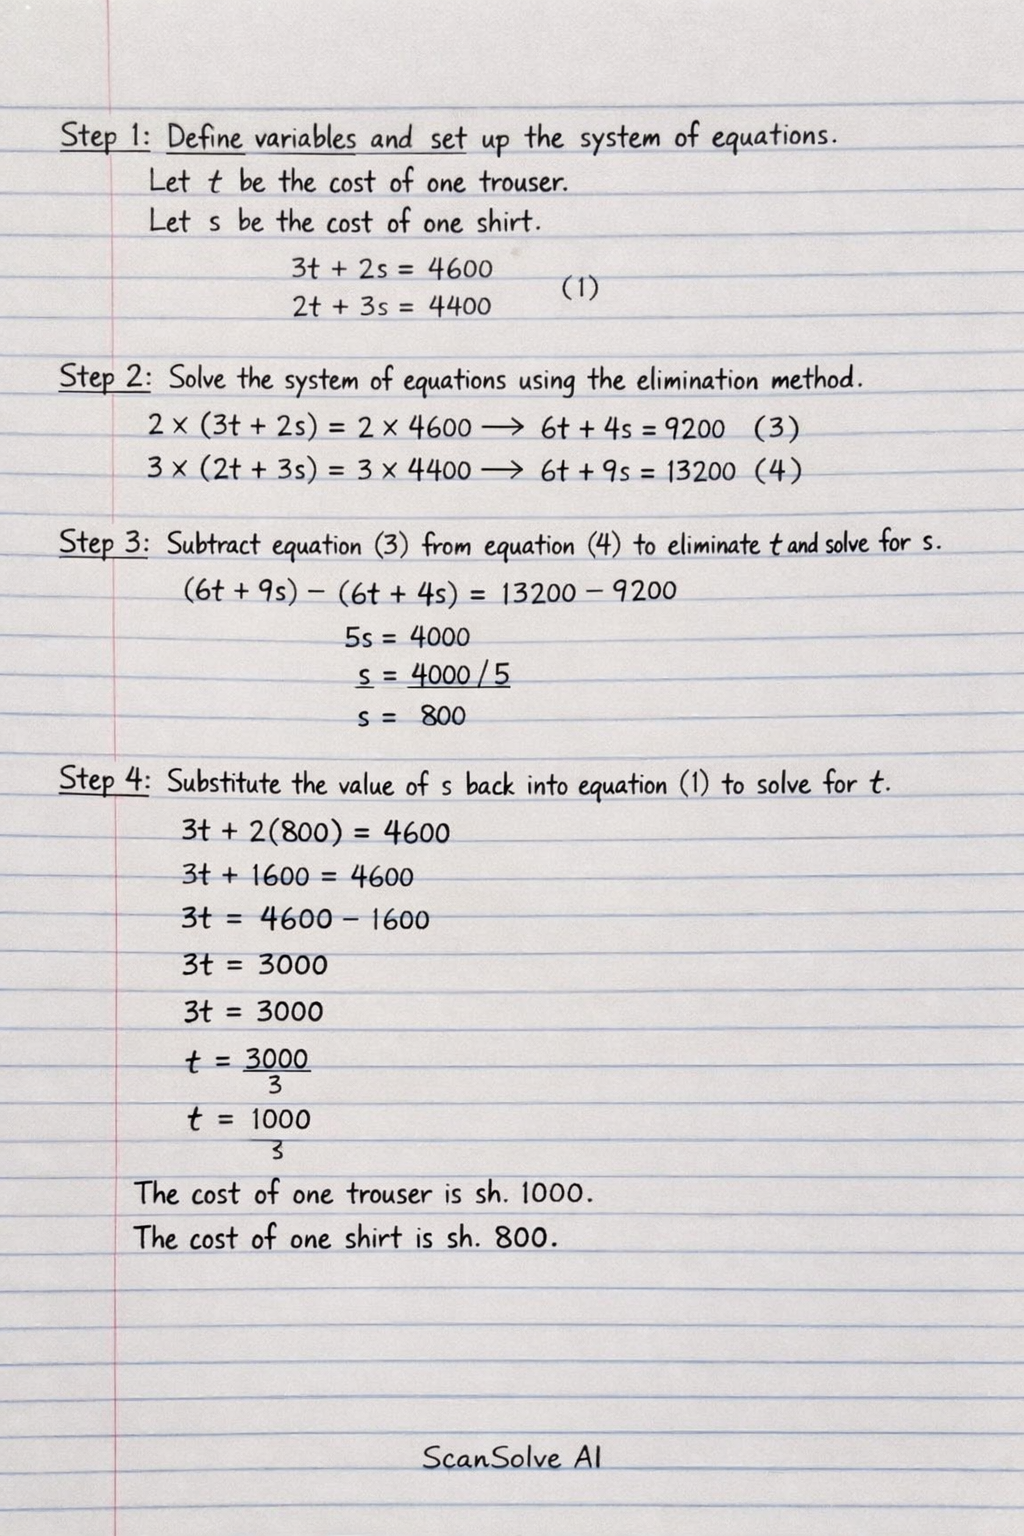 Step 1: Define variables and set up the system of equations.
Let t be the cost of one trouser.
Let s be the cost of one shirt.
3t + 2s = 4600
(1)
2t + 3s = 4400
Step 2: Solve the system of equations using the elimination method.
2 × (3t + 2s) = 2 × 4600 → 6t + 4s = 9200 (3)
3 × (2t + 3s) = 3 × 4400 → 6t + 9s = 13200 (4)
Step 3: Subtract equation (3) from equation (4) to eliminate t and solve for s.
(6t + 9s) − (6t + 4s) = 13200 − 9200
5s = 4000
s = 4000 / 5
s = 800
Step 4: Substitute the value of s back into equation (1) to solve for t.
3t + 2(800) = 4600
3t + 1600 = 4600
3t = 4600 − 1600
3t = 3000
3t = 3000
t = 3000
3
t = 1000
3
The cost of one trouser is sh. 1000.
The cost of one shirt is sh. 800.
ScanSolve AI